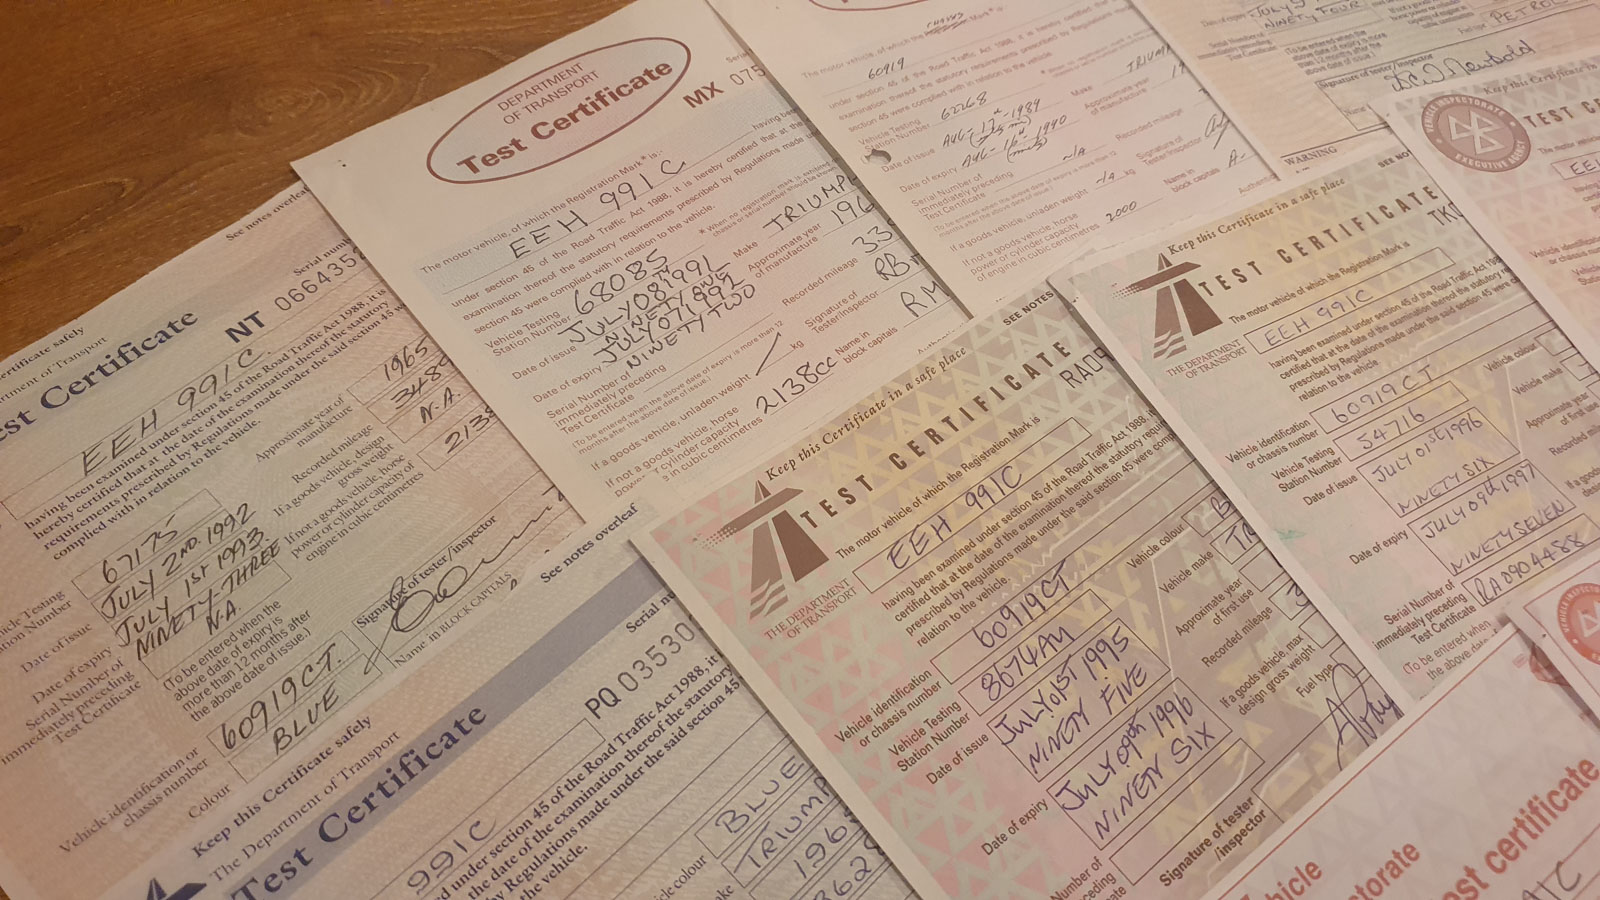 See notes overleaf
Serial num
certificate safely
artment of Transport
est Certificate
NT 066435
EEH 991C
having been examined under section 45 of the Road Traffic Act 1988, it is
hereby certified that at the date of the examination thereof the statutory
requirements prescribed by Regulations made under the said section 45 were
complied with in relation to the vehicle.
Vehicle Testing
Station Number
67175
Date of issue
JULY 2ND. 1992
Date of expiry
JULY 1ST 1993
NINETY-THREE
Serial Number of
immediately preceding
Test Certificate
N.A.
(To be entered when the
above date of expiry is
more than 12 months after
the above date of issue.)
Vehicle identification or
chassis number
60919CT.
Colour
BLUE
Approximate year of
manufacture
1965
Recorded mileage
If a goods vehicle, design
gross weight
N.A.
If not a goods vehicle, horse
power or cylinder capacity of
engine in cubic centimetres
213
Signature of tester/inspector
Name in BLOCK CAPITALS
DEPARTMENT
OF TRANSPORT
Test Certificate
MX 075
The motor vehicle, of which the Registration Mark* is:-
EEH 991C
having been
under section 45 of the Road Traffic Act 1988, it is hereby certified that at the
examination thereof the statutory requirements prescribed by Regulations made
section 45 were complied with in relation to the vehicle.
Vehicle Testing
Station Number
68085
Date of issue
JULY 08TH 1991
NINETY ONE
Date of expiry
JULY 07 1992
NINETY TWO
Serial Number of
immediately preceding
Test Certificate
(To be entered when the above date of expiry is more than 12
months after the above date of issue.)
If a goods vehicle, unladen weight
kg
If not a goods vehicle, horse
power or cylinder capacity
in cubic centimetres
2138cc
* When no registration mark is exhibited
Make
TRIUMPH
Approximate year
of manufacture
196
Recorded mileage
33
Signature of
Tester/Inspector
Name in
block capitals
RM
CHASSIS
The motor vehicle, of which the Mark* is:-
60919
under section 45 of the Road Traffic Act 1988, it is hereby certified that
examination thereof the statutory requirements prescribed by Regulations
section 45 were complied with in relation to the vehicle.
Vehicle Testing
Station Number
62268
Date of issue
AUG - 17th - 1989
Date of expiry
AUG - 16th - 1990
Serial Number of
immediately preceding
Test Certificate
N/A
If a goods vehicle, unladen weight
kg
If not a goods vehicle, horse
power or cylinder capacity
of engine in cubic centimetres
2000
Make
TRIUMP
Approximate year
of manufacture
Recorded mileage
Signature of
Tester/Inspector
Name in
block capitals
NINETY FOUR
PETROL
Signature of tester/inspector
WARNING
SEE NO
Keep this Certificate in
VEHICLE INSPECTORATE
EXECUTIVE AGENCY
TEST CE
The motor vehicle
EE
Vehicle identification
or chassis number
Keep this Certificate safely
The Department of Transport
Test Certificate
See notes overleaf
Serial nu
PQ 03530
991C
under section 45 of the Road Traffic Act 1988, it
the date of the examination thereof the statutory
by Regulations made under the said section 45
the vehicle.
Vehicle colour
BLUE
TRIUMP
196
3628
SEE NOTES
Keep this Certificate in a safe place
TEST CERTIFICATE
RA09
THE DEPARTMENT
OF TRANSPORT
The motor vehicle of which the Registration Mark is
EEH 991C
having been examined under section 45 of the Road Traffic Act 1988, it
certified that at the date of the examination thereof the statutory requi
prescribed by Regulations made under the said section 45 were comp
relation to the vehicle.
Vehicle identification
or chassis number
60919CT
Vehicle Testing
Station Number
8674AM
Date of issue
JULY 01ST 1995
NINETY FIVE
Date of expiry
JULY 09th 1996
NINETY SIX
Vehicle colour
B
Vehicle make
TR
Approximate year
of first use
Recorded mileage
If a goods vehicle, max
design gross weight
Fuel type
Signature of tester
/inspector
Keep this Certificate in a safe place
TEST CERTIFICATE
THE DEPARTMENT
OF TRANSPORT
The motor vehicle of which the Registration Mark is
EEH 991C
having been examined under section 45 of the Road Traffic Act 198
certified that at the date of the examination thereof the statutory re
prescribed by Regulations made under the said section 45 were
relation to the vehicle.
Vehicle identification
or chassis number
60919CT
Vehicle Testing
Station Number
54716
Date of issue
JULY 01ST 1996
NINETY SIX
Date of expiry
JULY 09th 1997
NINETY SEVEN
Serial Number of
immediately preceding
Test Certificate
RA0904488
(To be entered when
the above date
Vehicle colour
Vehicle make
Approximate year
of first use
Recorded mile
hicle
ctorate
est certificate